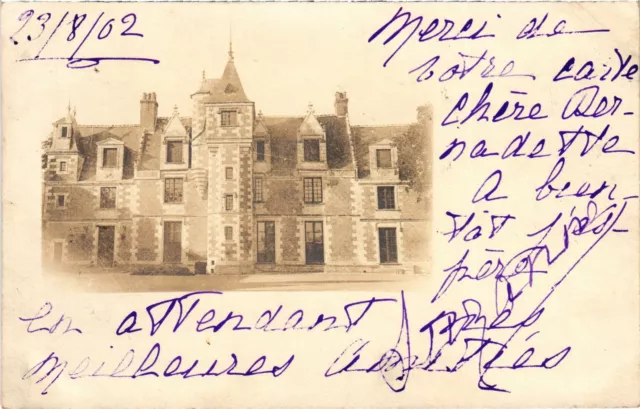 23/8/02
Merci de
votre carte
chère Ber-
nadette
A bien-
tôt j'es-
père
en attendant mes
meilleures Amitiés